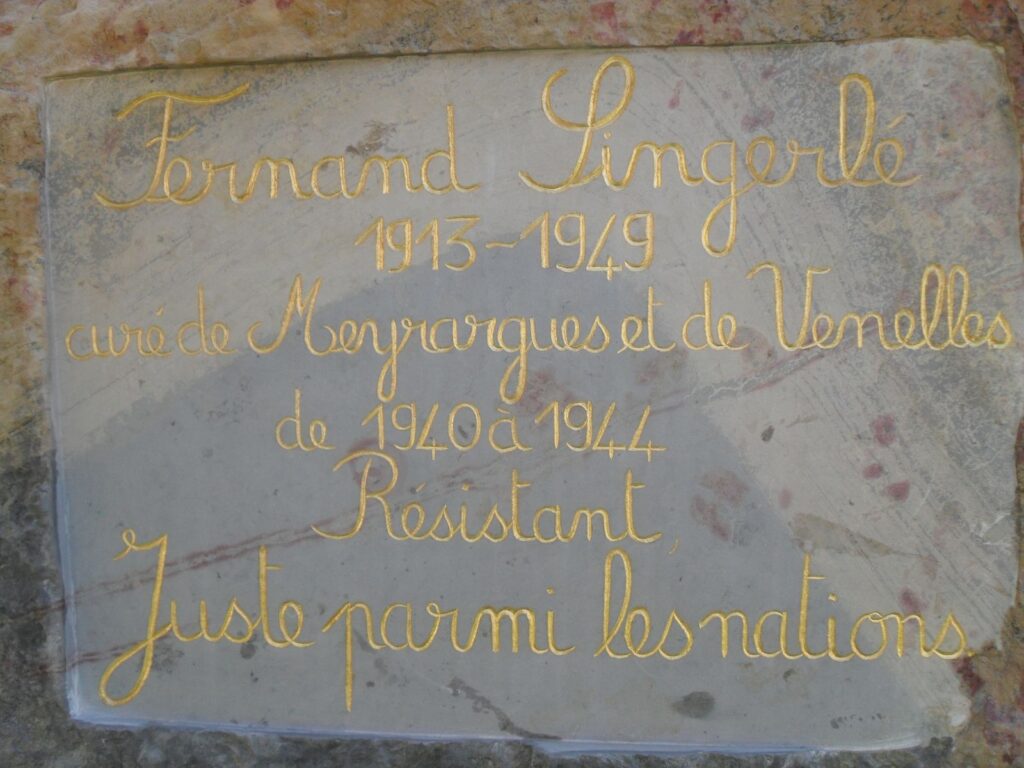 Fernand Singerlé
1913-1949
curé de Meyrargues et de Venelles
de 1940 à 1944
Résistant,
Juste parmi les nations